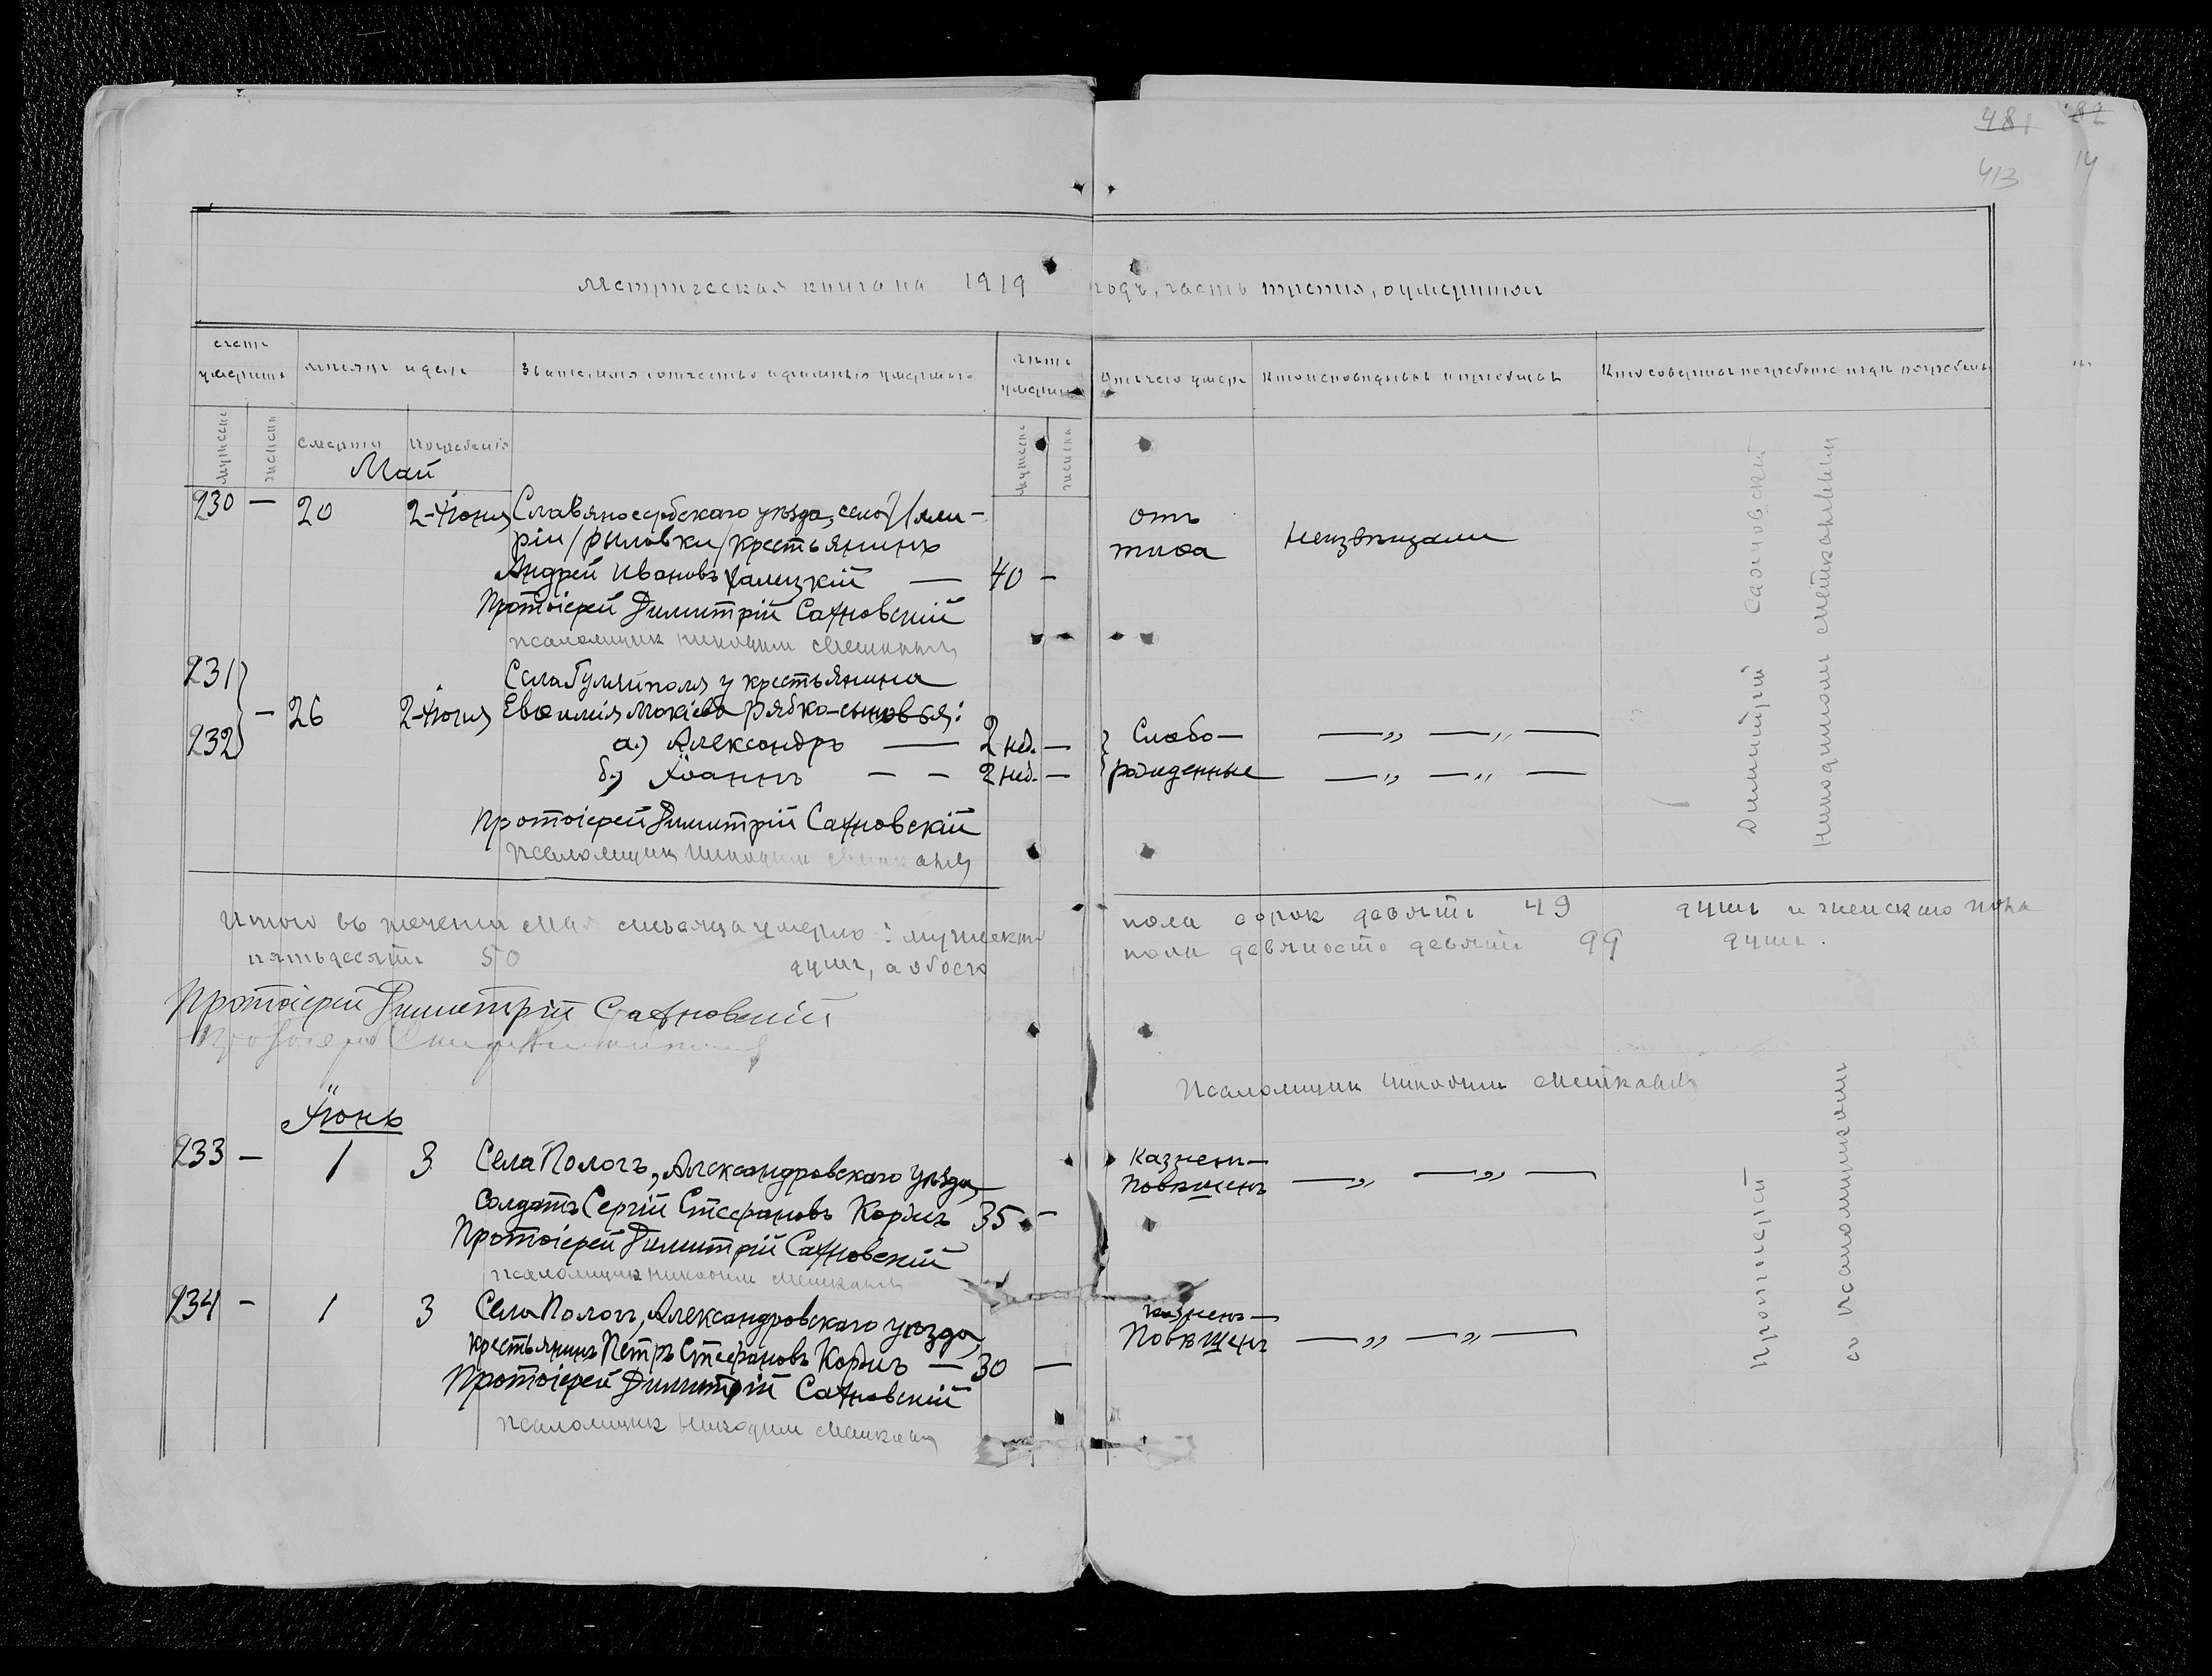 481 82
413 14
Метрическая книга на 1919 годъ, часть третья, о умершихъ
счетъ умершихъ
мѣсяцъ и день
Званіе, имя, отчество и фамилія умершаго
лѣта умершаго
Отъ чего умеръ
Кто исповѣдывалъ и пріобщалъ
Кто совершалъ погребеніе и гдѣ погребены
мужескъ
женскъ
смерти
погребенія
мужескъ
женскъ
Май
230 — 20 2-Іюня Славяносербскаго уѣзда, село Илли-
ріи /рыловки/ крестьянинъ
Андрей Ивановъ — 40 —
отъ
тифа
Неизвѣщали
Протоіерей Димитрій Сахновскій
псаломщикъ Никодимъ Мешканецъ
231
232 — 26 2-Іюня
Села Гуляйполя у крестьянина
Евѳимія Мокіева Рябко-сыновья:
а.) Александръ — 2 нед. — Слабо — „ — „ —
б.) Іоаннъ — — 2 нед. — рожденные — „ — „ —
Протоіерей Димитрій Сахновскій
псаломщикъ Никодимъ Мешканецъ
Итого въ теченіи мая мѣсяца умерло: мужескаго пола сорок девять 49 душъ и женскаго пола
пятьдесятъ 50 душъ, а обоего пола девяносто девять 99 душъ.
Протоіерей Димитрій Сахновскій
Псаломщикъ Никодимъ Мешканецъ
Іюнь
233 — 1 3 Села Пологъ, Александровскаго уѣзда,
солдатъ Сергій Стефановъ Коржъ 35 —
казненъ —
повѣшенъ — „ — „ —
Протоіерей Димитрій Сахновскій
псаломщикъ Никодимъ Мешканецъ
234 — 1 3 Села Пологъ, Александровскаго уѣзда,
крестьянинъ Петръ Стефановъ Коржъ — 30 —
казненъ —
Повѣшенъ — „ — „ —
Протоіерей Димитрій Сахновскій
псаломщикъ Никодимъ Мешканецъ
Протоіерей Димитрій Сахновскій
съ псаломщикомъ Никодимомъ Мешканцемъ